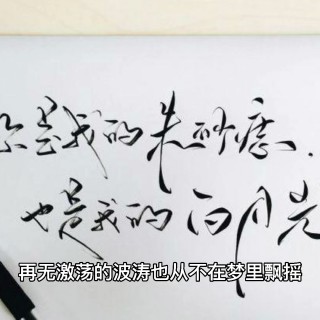 你是我的朱砂痣、
也是我的白月光
再无激荡的波涛也从不在梦里飘摇